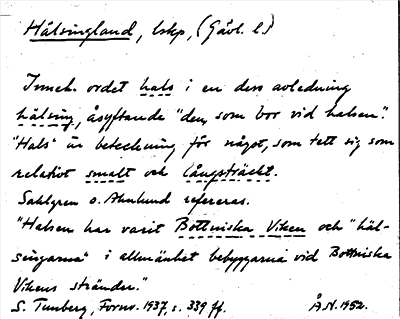 Hälsingland, lskp, (Gävl. l.)
Inneh. ordet hals i en dess avledning
hälsing, åsyftande "den, som bor vid halsen".
"Hals" är beteckning för något, som tett sig som
relativt smalt och långsträckt.
Sahlgren o. Ahnlund refereras.
"Halsen har varit Bottniska Viken och "häl-
singarna" i allmänhet bebyggarna vid Bottniska
Vikens stränder."
S. Tunberg, Fornv. 1937, s. 339 ff. Å.N. 1952.